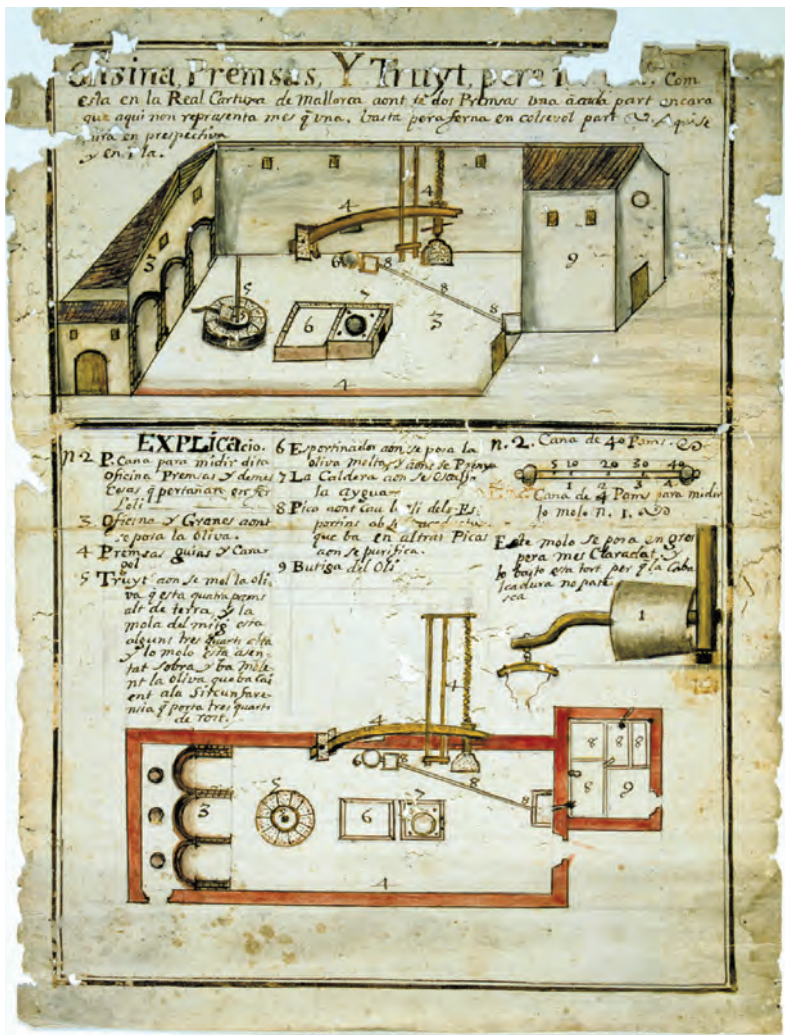 Premsas, Y Truyt, pera Com
esta en la Real Cartuxa de Mallorca aont te dos Premsas una à cada part encara
que aqui non representa mes q una. basta pera ferna en colsevol part
mira en prespectiva
y en
4
4
3
9
5
6
8
7
8
6
3
8
4
EXPLICacio.
n. 2 P. Cana para midir dita
Oficina Premsas y demes
Cosas q pertañan per fer
Loli
3 Oficina y Granes aont
se posa la oliva.
4 Premsas guias y Cara
gol
5 Truyt aon se mol la oli
va q esta quatra prems
alt de terra, y la
mola del mitg esta
algunt tres quarts alta
y lo molo esta asen
tat sobra y ba mole
nt la oliva que ba cai
ent ala Sircunfaren
sia q porta tres quarts
de rost.
6 Esportinador aon se posa la
oliva molta, y aont se Prensa
7 La Caldera aon se escalfa
la aygua
8 Pica aont cau loli dels Es
portins ab se
que ba en altras Picas
aon se purifica.
9 Butiga del Oli
n. 2. Cana de 40 Pams.
5 10 20 30 40
1 2 3 4
Cana de 4 Pams para midir
lo molo n. 1.
Este molo se posa en gros
pera mes Claradat, y
lo basto esta tort per q la Caba
lcadura no pate
sca
1
4
4
6
8
8
8
8
8
8
8
8
9
3
5
6
7
4